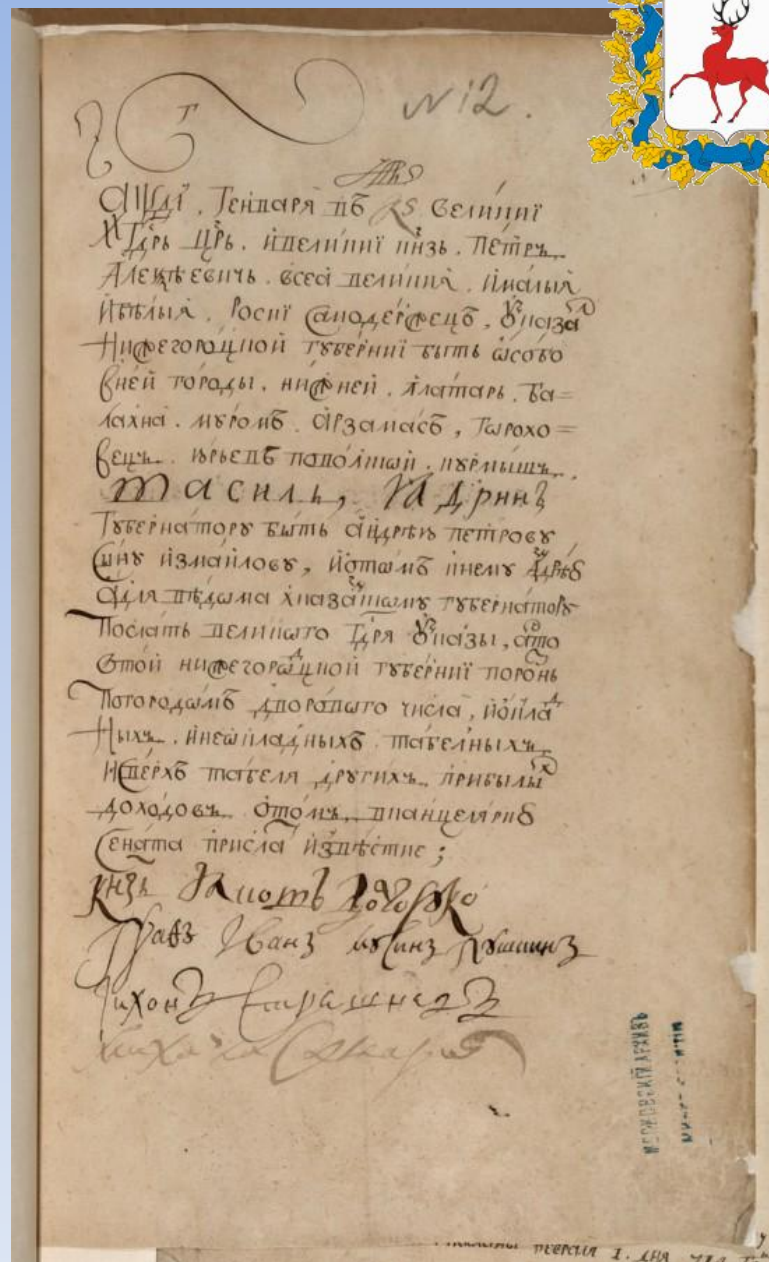 N 12.
҂аѱді, Генваря въ 26 великиї
Гдрь црь. и великиї кнзь. Петръ
Алеѯѣевичь. всеа великия. и малыя
и бѣлыя. Росиї самодержецъ, ꙋказал
Нижегороцкой гꙋберниї быть ѡсобо
в ней городы. нижней. алатарь. ба=
лахна. мꙋромъ. арзамасъ, гѡрохо=
вецъ. юрьевъ поволской. кꙋрмышъ.
василь, ядринъ
Гꙋбернаторꙋ быть андрѣю петровꙋ
сынꙋ измаиловꙋ, и о томъ к немꙋ андрѣю
а для вѣдома х казанскомꙋ гꙋбернаторꙋ
послать великого гдря ꙋказы, а что
в той нижегороцкой гꙋберниї порознь
по городомъ дворового числа, и ѡклад
ных. и неѡкладных табелных
и сверхъ табеля других прибылых
доходовъ. о том в канцелярию
сената присла извѣстие;
кнзь
Графъ Иванъ мусинъ пушкинъ
Тихонъ Стрешневъ
МОСКОВСКІЙ АРХИВЪ